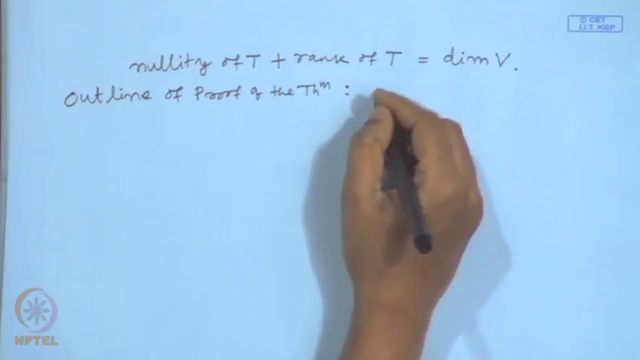 © CET
I.I.T. KGP
nullity of T + rank of T = dim V.
Outline of Proof of the Thm :
NPTEL